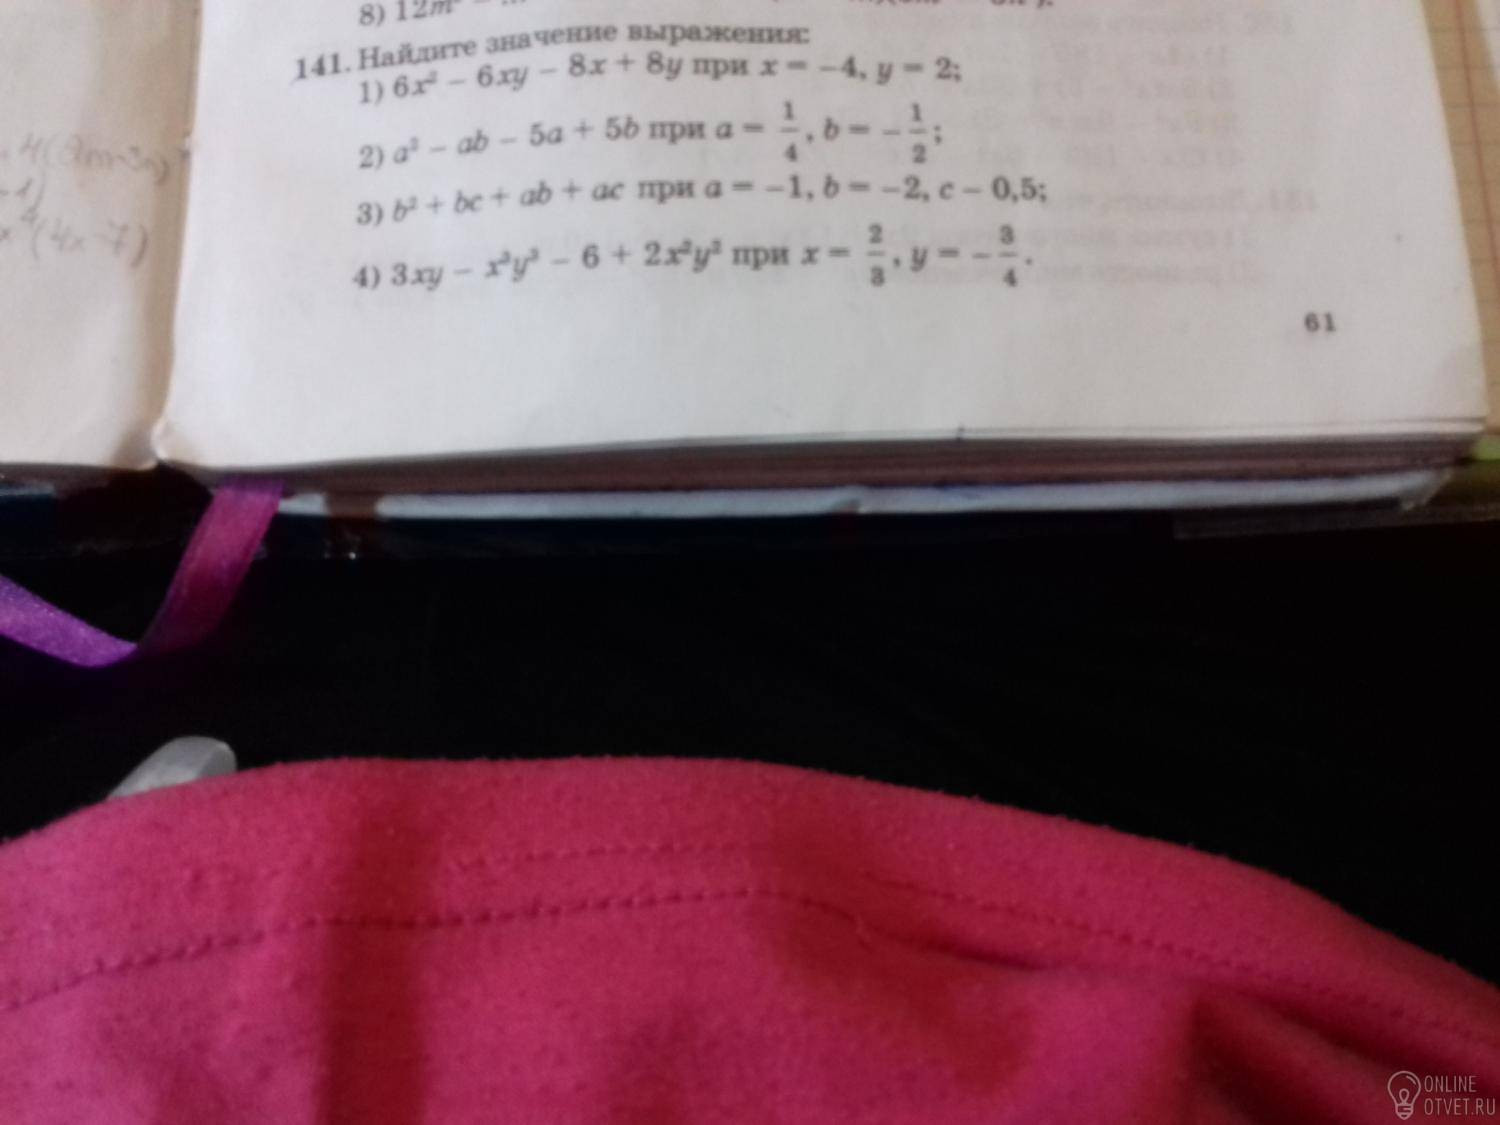 8) 12m
141. Найдите значение выражения:
1) 6x² − 6xy − 8x + 8y при x = −4, y = 2;
2) a² − ab − 5a + 5b при a = 1/4, b = −1/2;
3) b² + bc + ab + ac при a = −1, b = −2, c = 0,5;
4) 3xy − x³y³ − 6 + 2x²y² при x = 2/3, y = −3/4.
61
x⁴(4x−7)
ONLINE
OTVET.RU